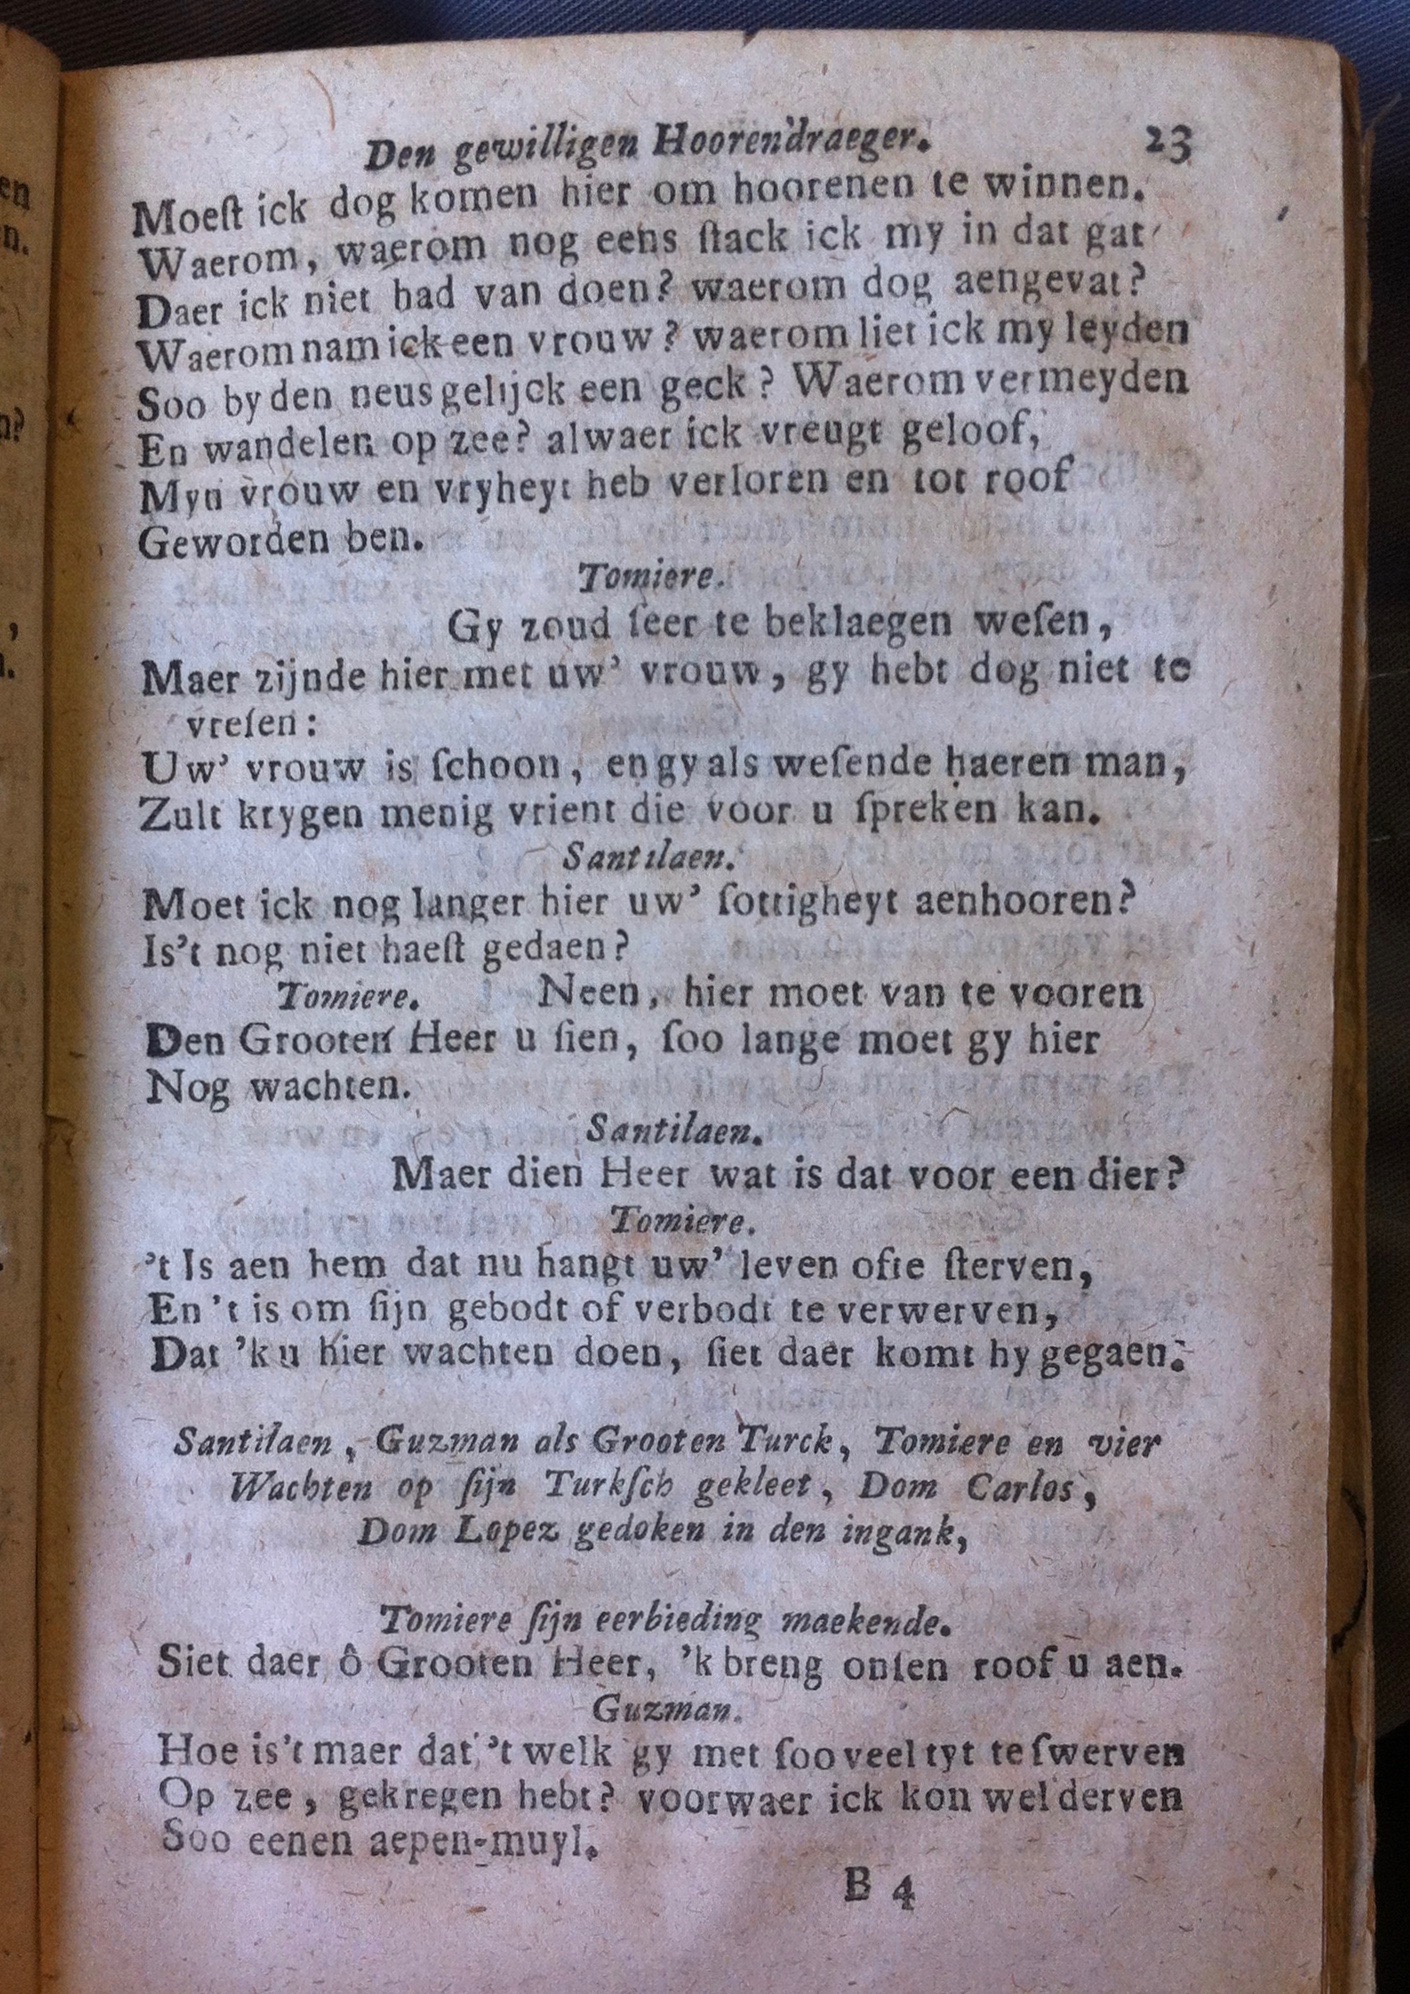 Den gewilligen Hoorendraeger. 23
Moeſt ick dog komen hier om hoorenen te winnen.
Waerom, waerom nog eens ſtack ick my in dat gat
Daer ick niet had van doen? waerom dog aengevat?
Waerom nam ick een vrouw? waerom liet ick my leyden
Soo by den neus gelijck een geck? Waerom vermeyden
En wandelen op zee? alwaer ick vreugt geloof,
Myn vrouw en vryheyt heb verloren en tot roof
Geworden ben.
Tomiere.
Gy zoud ſeer te beklaegen weſen,
Maer zijnde hier met uw' vrouw, gy hebt dog niet te
vreſen:
Uw' vrouw is ſchoon, en gy als weſende haeren man,
Zult krygen menig vrient die voor u ſpreken kan.
Santilaen.
Moet ick nog langer hier uw' ſottigheyt aenhooren?
Is't nog niet haeſt gedaen?
Tomiere. Neen, hier moet van te vooren
Den Grooten Heer u ſien, ſoo lange moet gy hier
Nog wachten.
Santilaen.
Maer dien Heer wat is dat voor een dier?
Tomiere.
't Is aen hem dat nu hangt uw' leven ofte ſterven,
En 't is om ſijn gebodt of verbodt te verwerven,
Dat 'k u hier wachten doen, ſiet daer komt hy gegaen.
Santilaen, Guzman als Grooten Turck, Tomiere en vier
Wachten op ſijn Turkſch gekleet, Dom Carlos,
Dom Lopez gedoken in den ingank,
Tomiere ſijn eerbieding maekende.
Siet daer ô Grooten Heer, 'k breng onſen roof u aen.
Guzman.
Hoe is't maer dat 't welk gy met ſoo veel tyt te ſwerven
Op zee, gekregen hebt? voorwaer ick kon wel derven
Soo eenen aepen-muyl.
B 4